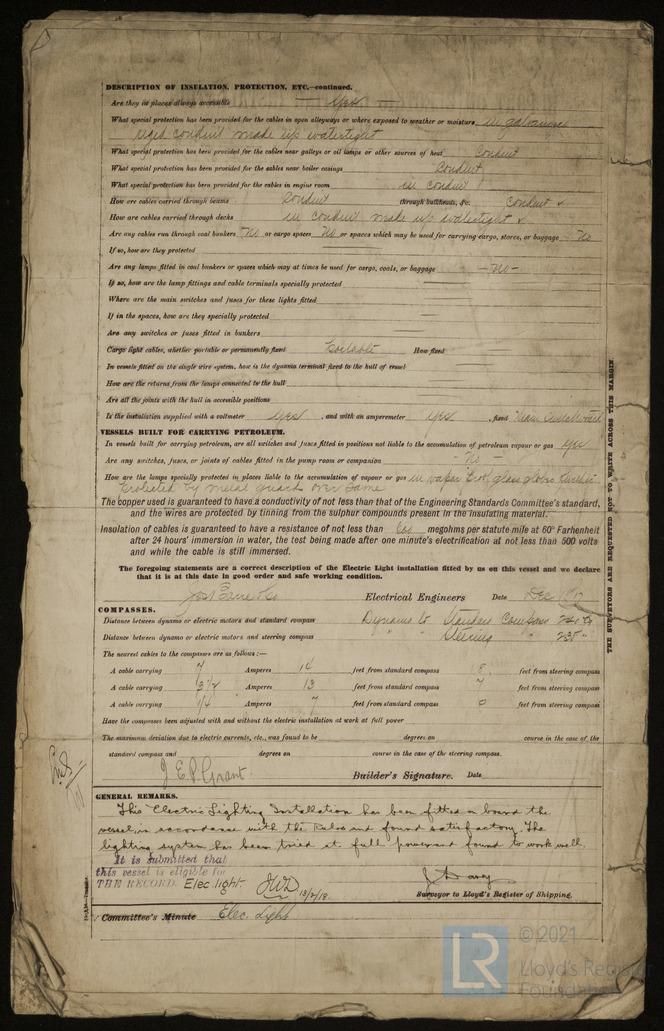 DESCRIPTION OF INSULATION, PROTECTION, ETC.—continued.
Are they in places always accessible — Yes —
What special protection has been provided for the cables in open alleyways or where exposed to weather or moisture in galvanized
conduit made up watertight
What special protection has been provided for the cables near galleys or oil lamps or other sources of heat Conduit
What special protection has been provided for the cables near boiler casings Conduit
What special protection has been provided for the cables in engine room in conduit
How are cables carried through beams Conduit through bulkheads, &c. Conduit
How are cables carried through decks in conduit made up watertight
Are any cables run through coal bunkers No or cargo spaces No or spaces which may be used for carrying cargo, stores, or baggage No
If so, how are they protected
Are any lamps fitted in coal bunkers or spaces which may at times be used for cargo, coals, or baggage — No —
If so, how are the lamp fittings and cable terminals specially protected
Where are the main switches and fuses for these lights fitted
If in the spaces, how are they specially protected
Are any switches or fuses fitted in bunkers
Cargo light cables, whether portable or permanently fixed Portable How fixed
In vessels fitted on the single wire system, how is the dynamo terminal fixed to the hull of vessel
How are the returns from the lamps connected to the hull
Are all the joints with the hull in accessible positions
Is the installation supplied with a voltmeter Yes , and with an amperemeter Yes , fixed Main
VESSELS BUILT FOR CARRYING PETROLEUM.
In vessels built for carrying petroleum, are all switches and fuses fitted in positions not liable to the accumulation of petroleum vapour or gas Yes
Are any switches, fuses, or joints of cables fitted in the pump room or companion — No —
How are the lamps specially protected in places liable to the accumulation of vapour or gas in vapor glass globes
Protected by metal guard over same
The copper used is guaranteed to have a conductivity of not less than that of the Engineering Standards Committee's standard,
and the wires are protected by tinning from the sulphur compounds present in the insulating material.
Insulation of cables is guaranteed to have a resistance of not less than 600 megohms per statute mile at 60° Farhenheit
after 24 hours' immersion in water, the test being made after one minute's electrification at not less than 500 volts
and while the cable is still immersed.
The foregoing statements are a correct description of the Electric Light installation fitted by us on this vessel and we declare
that it is at this date in good order and safe working condition.
Electrical Engineers Date Dec
COMPASSES.
Distance between dynamo or electric motors and standard compass Dynamo to Standard Compass
Distance between dynamo or electric motors and steering compass " " Steering "
The nearest cables to the compasses are as follows:—
A cable carrying 7 Amperes 14 feet from standard compass feet from steering compass
A cable carrying 3 1/2 Amperes 13 feet from standard compass 7 feet from steering compass
A cable carrying 1/4 Amperes 7 feet from standard compass 0 feet from steering compass
Have the compasses been adjusted with and without the electric installation at work at full power
The maximum deviation due to electric currents, etc., was found to be degrees on course in the case of the
standard compass and degrees on course in the case of the steering compass.
J. E. P. Grant Builder's Signature. Date
GENERAL REMARKS.
This Electric Lighting Installation has been fitted on board the
vessel in accordance with the Rules and found satisfactory. The
lighting system has been tried at full power and found to work well.
It is submitted that
this vessel is eligible for
THE RECORD. Elec light. JWD 13/2/18
Surveyor to Lloyd's Register of Shipping.
Committee's Minute Elec. Light
THE SURVEYORS ARE REQUESTED NOT TO WRITE ACROSS THIS MARGIN.
LR
© 2021
Lloyd's Register
Foundation